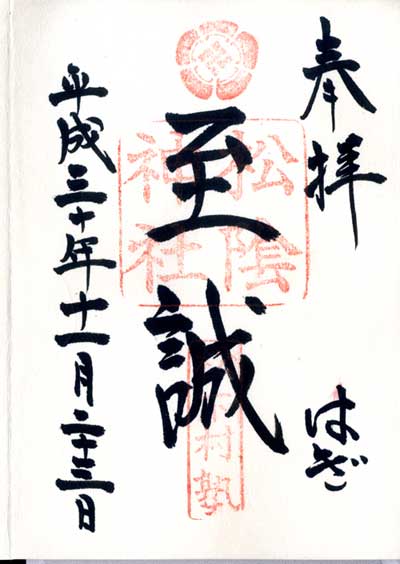 奉拝
はぎ
至誠
松陰
神社
村塾
平成三十年十一月二十三日